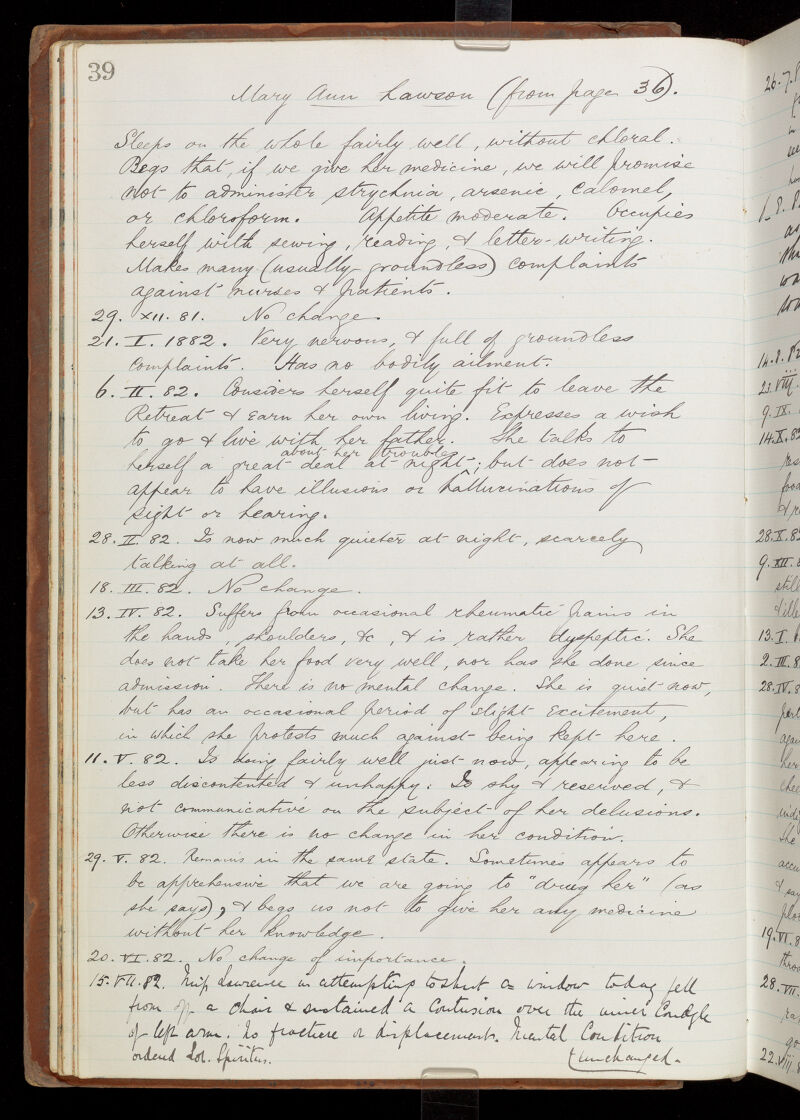 39
Mary Ann Lawson (from page 36).
Sleeps on the whole fairly well, without chloral.
Begs that, if we give her medicine, we will promise
not to administer strychnia, arsenic, calomel,
or chloroform. Appetite moderate. Occupies
herself with sewing, reading, & letter-writing.
Makes many (usually groundless) complaints
against nurses & patients.
29. XII. 81. No change.
21. I. 1882. Very nervous, & full of groundless
complaints. Has no bodily ailment.
6. II. 82. Considers herself quite fit to leave the
Retreat & earn her own living. Expresses a wish
to go & live with her father. She talks to
about her troubles
herself a great deal at night; but does not
appear to have illusions or hallucinations of
sight or hearing.
28. II. 82. Is now much quieter at night, scarcely
talking at all.
18. III. 82. No change.
13. IV. 82. Suffers from occasional rheumatic pains in
the hands, shoulders, &c, & is rather dyspeptic. She
does not take her food very well, nor has she done since
admission. There is no mental change. She is quiet now,
but has an occasional period of slight excitement,
in which she protests much against being kept here.
11. V. 82. Is doing fairly well just now, appearing to be
less discontented & unhappy. Is shy & reserved, &
not communicative on the subject of her delusions.
Otherwise there is no change in her condition.
29. V. 82. Remains in the same state. Sometimes appears to
be apprehensive that we are going to "drug her" (as
she says), & begs us not to give her any medicine
without her knowledge.
20. VI. 82. No change of importance.
15. VII. 82. Miss Lawrence in attempting to shut a window today fell
from off a chair & sustained a contusion over the inner Condyle
of left arm. No fracture or displacement. Mental Condition
ordered Lot. Spiritus. (unchanged.
26. 7. 8
1. 8. 8
14. 8. 82
23. VIII.
9. IX.
14. X. 82
res
food
28. X. 82
9. XII. 8
still
13. I.
2. III. 8
28. IV. 8
part
again
her
chee
indi
She
accu
& say
19. VI. 8
throu
28. VII.
go
22. VIII. 8